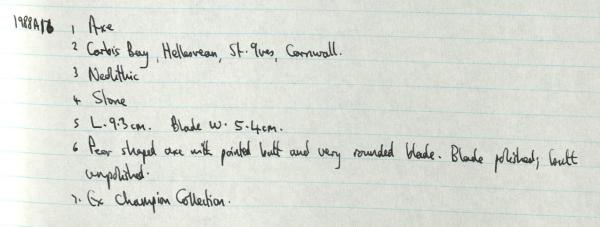 1988A176 1 Axe
2 Carbis Bay, Hellesvean, St. Ives, Cornwall.
3 Neolithic
4 Stone
5 L. 9.3cm. Blade W. 5.4cm.
6 Pear shaped axe with pointed butt and very rounded blade. Blade polished; butt
unpolished.
7. Ex Champion Collection.